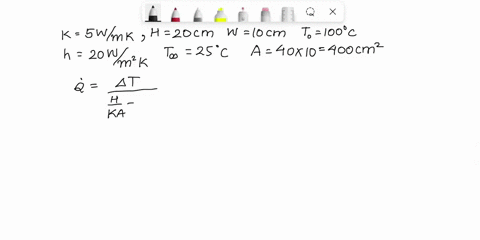 K = 5W/mK , H = 20cm W = 10cm T₀ = 100°C
h = 20W/m²K T∞ = 25°C A = 40×10 = 400cm²
Q̇ = ΔT / (H/KA –